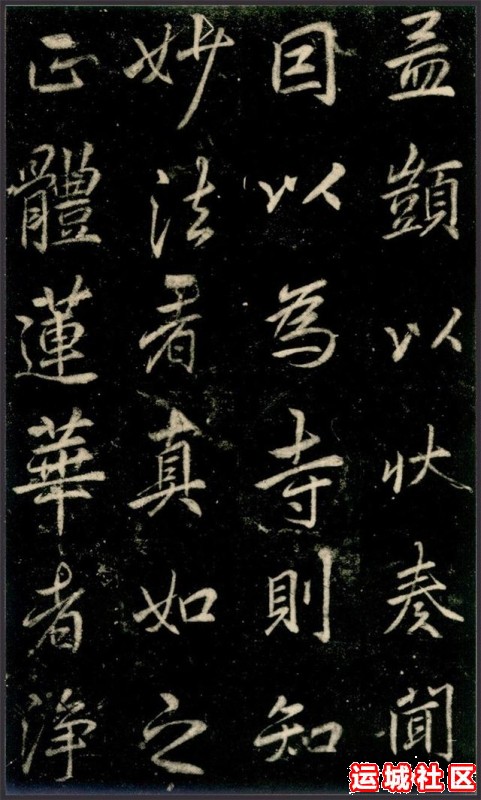 孟顗以狀奏聞
因以為寺則知
妙法者真如之
正體蓮華者淨
运城社区